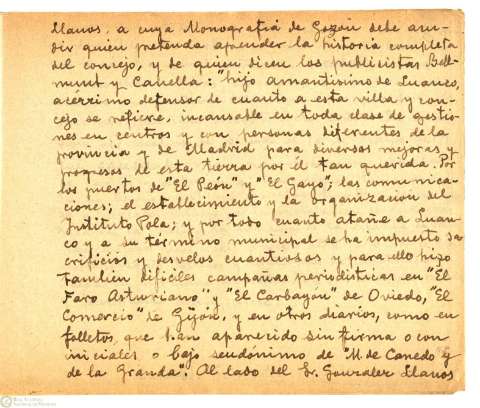 Llanos, a cuya Monografía de Gozón debe acu-
dir quien pretenda aprender la historia completa
del concejo, y de quien dicen los publicistas Bell-
munt y Canella: "hijo amantísimo de Luanco,
acérrimo defensor de cuanto a esta villa y con-
cejo se refiere, incansable en toda clase de gestio-
nes en centros y con personas diferentes de la
provincia y de Madrid para diversas mejoras y
progresos de esta tierra por él tan querida. Por
los puertos de "El Peón" y "El Gayo"; las comunica-
ciones; el establecimiento y la organización del
Instituto Pola; y por todo cuanto atañe a Luan-
co y a su término municipal se ha impuesto sa-
crificios y desvelos cuantiosos y para ello hizo
también difíciles campañas periodísticas en "El
Faro Asturiano" y "El Carbayón" de Oviedo, "El
Comercio" de Gijón, y en otros diarios, como en
folletos, que han aparecido sin firma o con
iniciales o bajo seudónimo de "M. de Canedo y
de la Granda". Al lado del Sr. Gonzalez Llanos